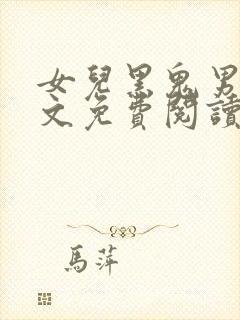 女兒黑鬼男
文免費閱讀
馬萍